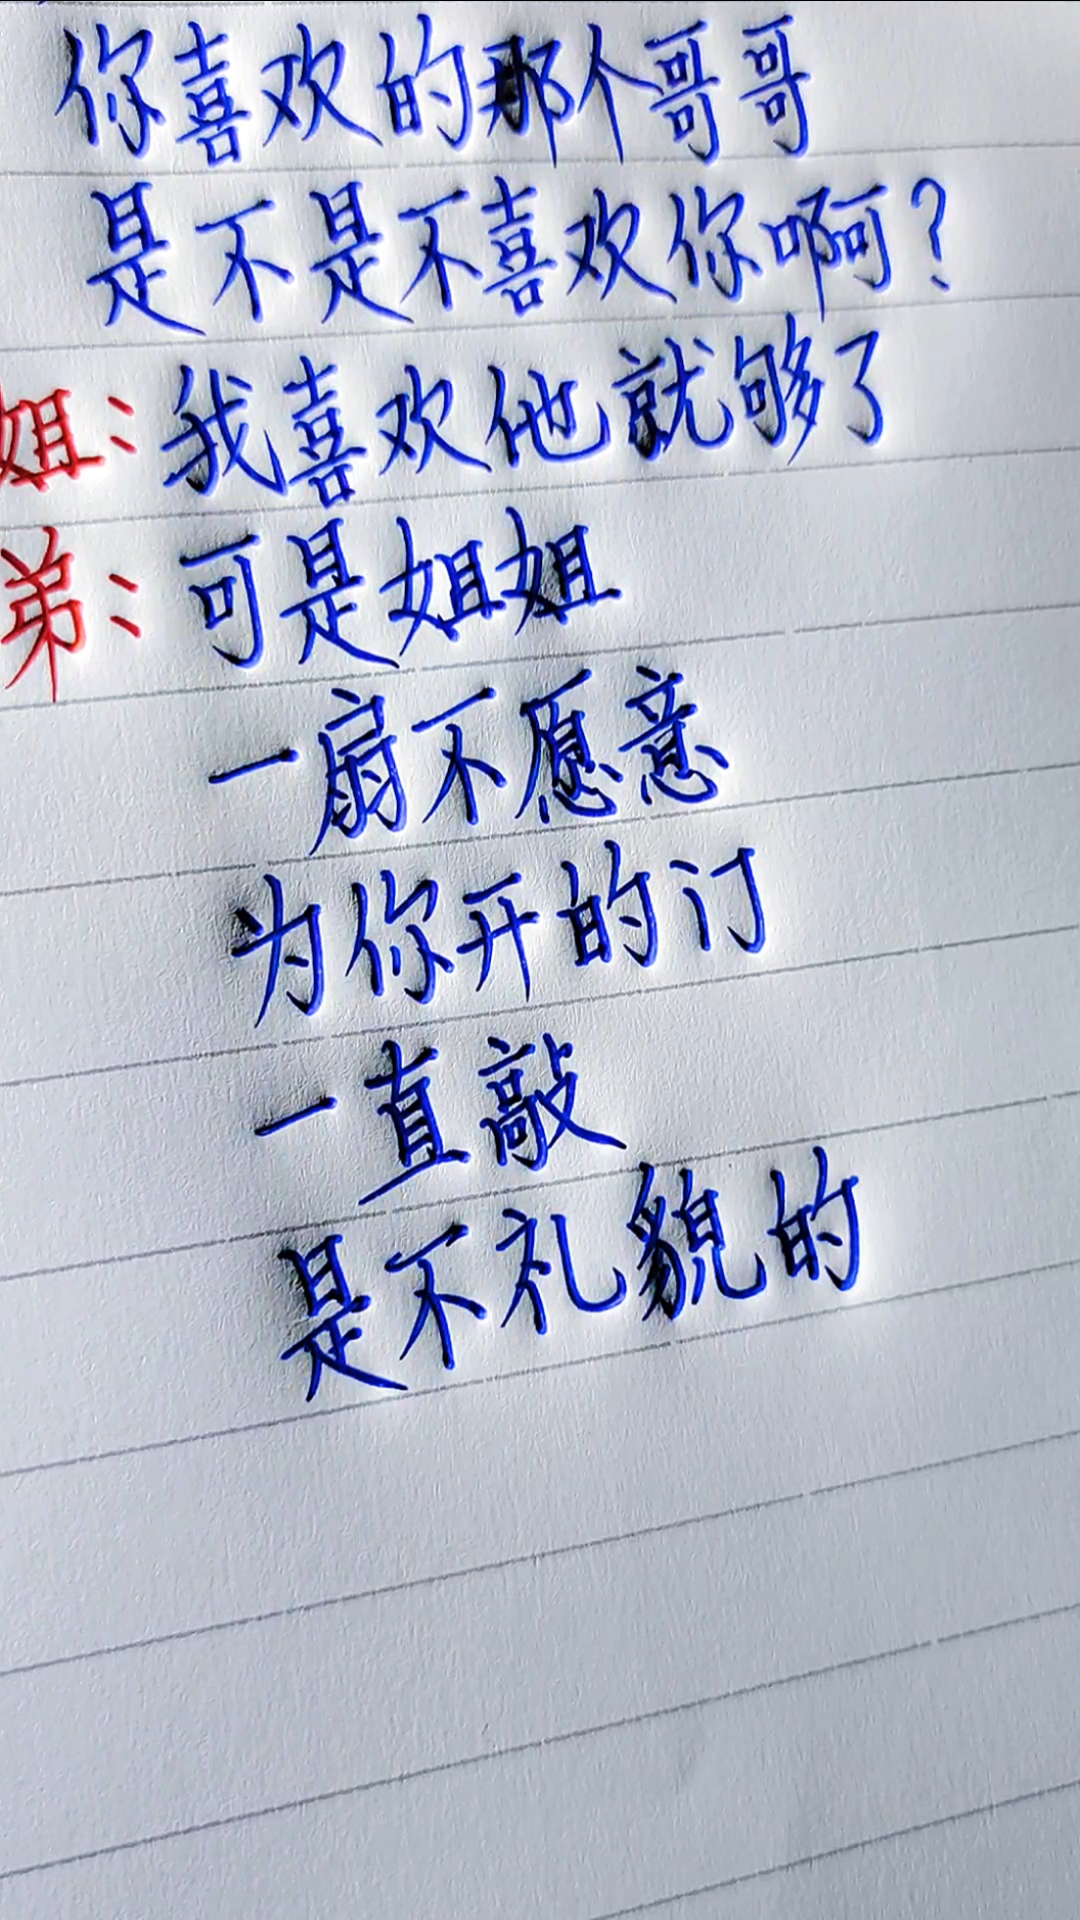 你喜欢的那个哥哥
是不是不喜欢你啊?
姐:我喜欢他就够了
弟:可是姐姐
一扇不愿意
为你开的订
一直敲
是不礼貌的